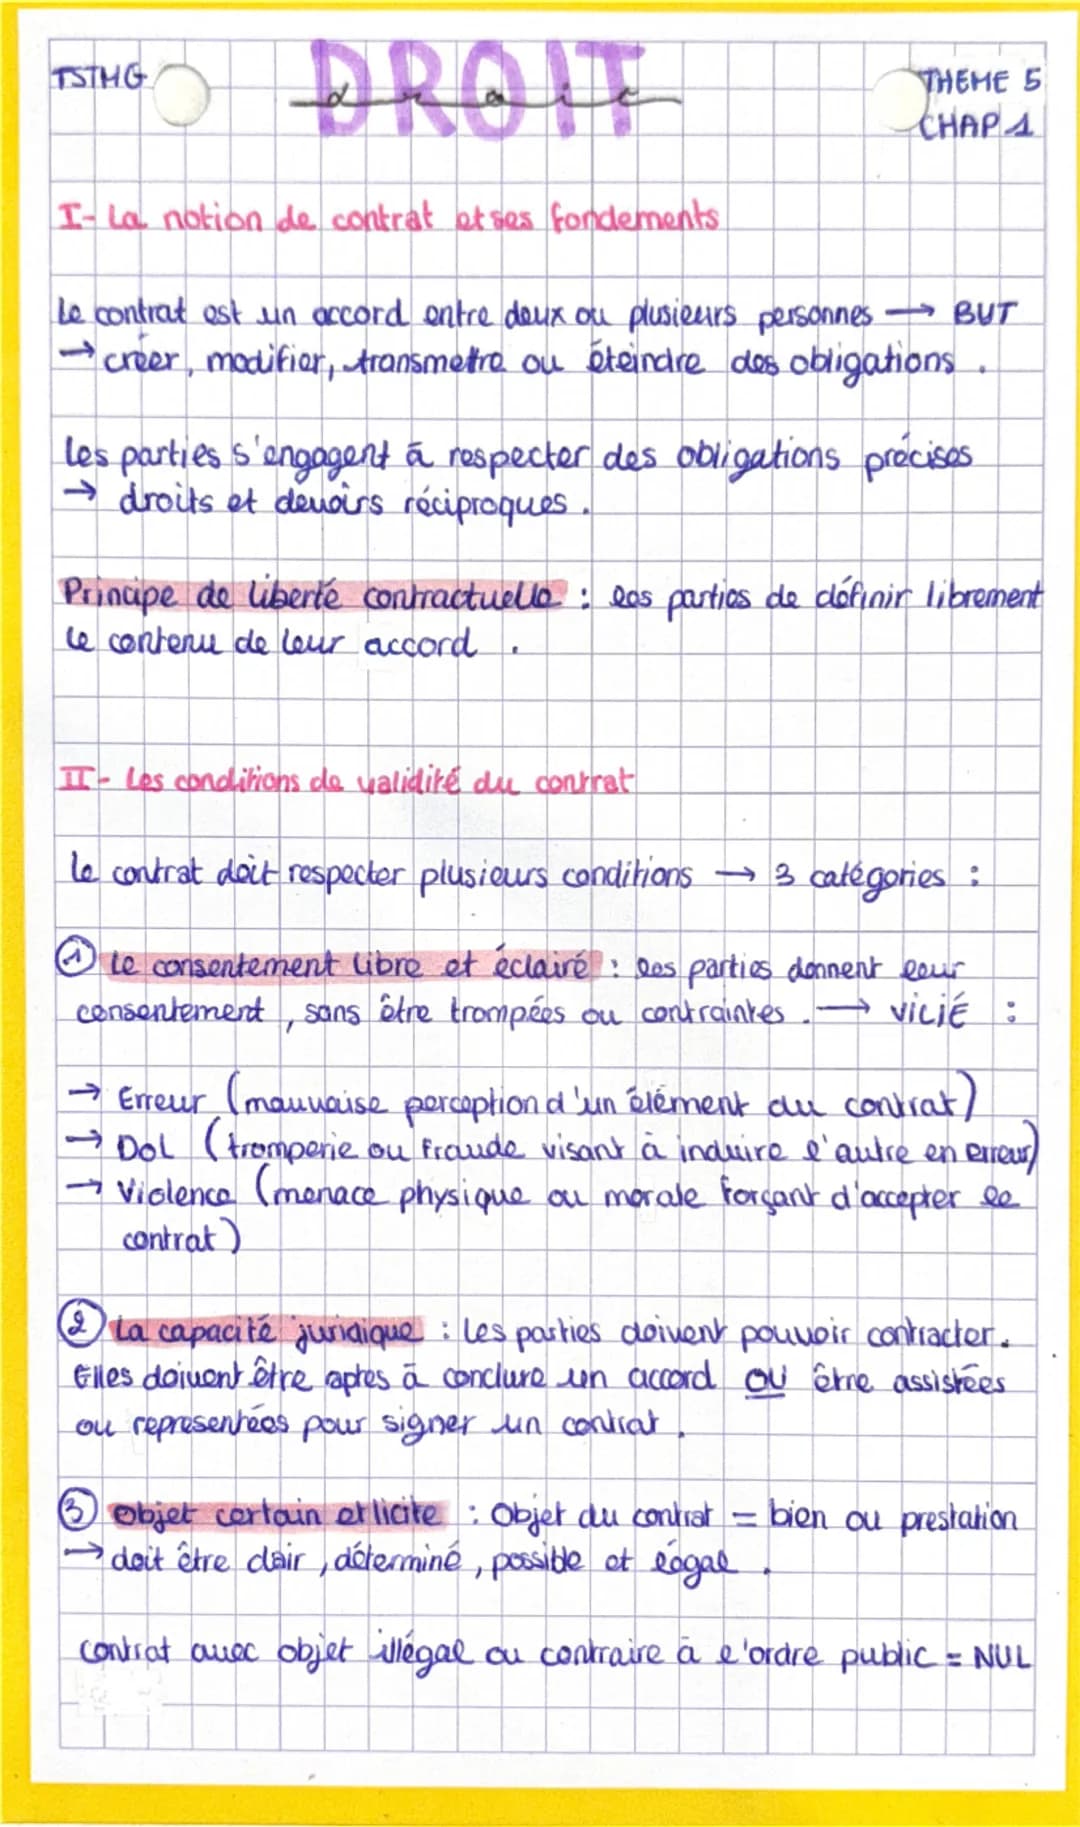 TSTMG
DROIT
droit
THEME 5
CHAP 1
I- La notion de contrat et ses fondements
Le contrat est un accord entre deux ou plusieurs personnes → BUT
→ créer, modifier, transmettre ou éteindre des obligations.
Les parties s'engagent à respecter des obligations précises
→ droits et devoirs réciproques.
Principe de liberté contractuelle : les parties de définir librement
le contenu de leur accord.
II- Les conditions de validité du contrat
Le contrat doit respecter plusieurs conditions → 3 catégories :
① Le consentement libre et éclairé : les parties donnent leur
consentement, sans être trompées ou contraintes. → VICIÉ :
→ Erreur (mauvaise perception d'un élément du contrat)
→ DOL (tromperie ou fraude visant à induire l'autre en erreur)
→ Violence (menace physique ou morale forçant d'accepter le
contrat)
② La capacité juridique : Les parties doivent pouvoir contracter.
Elles doivent être aptes à conclure un accord OU être assistées
ou representées pour signer un contrat.
③ Objet certain et licite : Objet du contrat = bien ou prestation
→ doit être clair, déterminé, possible et légal.
Contrat avec objet illégal ou contraire à l'ordre public = NUL